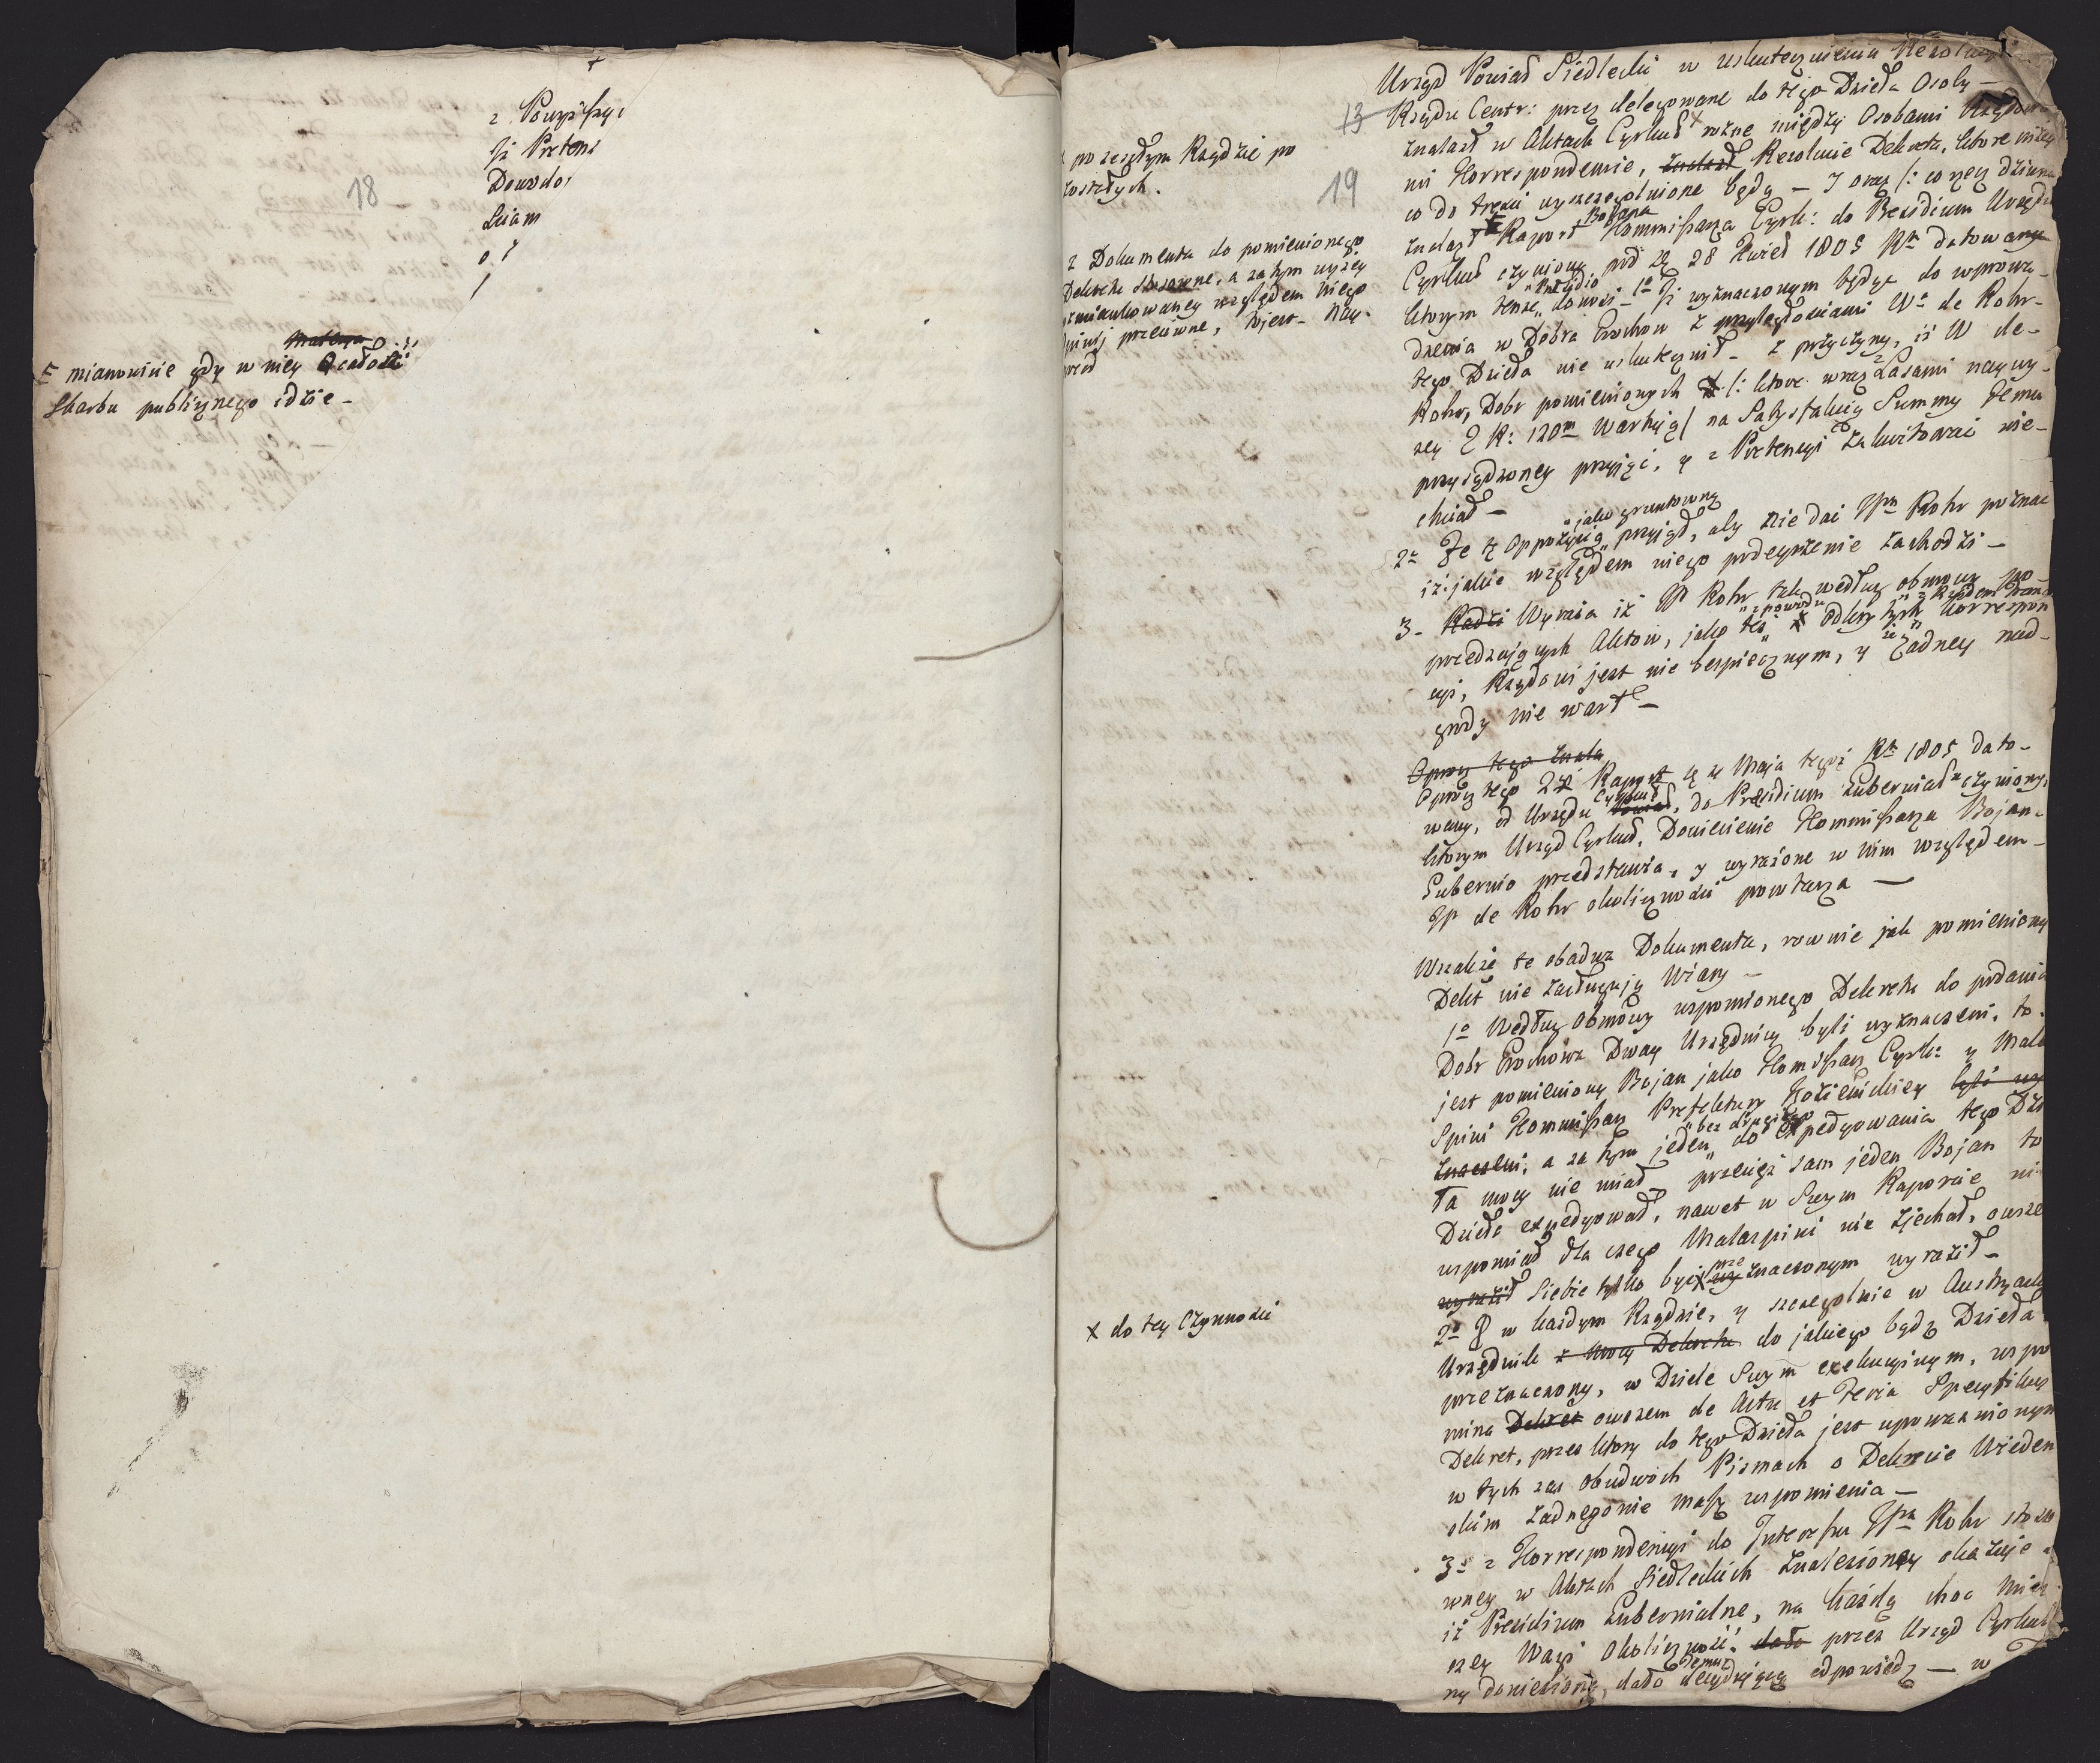 z Powyższy
Iż Pretens
Dowodo
Sciam
18
E mianowicie gdy w niey O całość
Skarbu publicznego idzie -
13
19
po zeszłym Rządzie po
zostałych.
z Dokumenta do pomienionego
Dekretu stosowne, a zatym wyżey
względem niego
przeciwne, to jest - Nay-
przod
x do tey Czynności
Urząd Powiat Siedlecki w uskutecznieniu Rezolucyi
Rządu Centr: przez delegowane do tego Dzieła Osoby -
znalazł w Aktach Cyrkuł rożne między Osobami Rządowe
mi Korrespondencie, znalazł Rezolucie Dekreta, ktore niżey
co do treści wyszczegolnione będą - J oraz /: co rzecz dziwna
znalazł Raport Bojana Kommissarza Cyrk: do Prezidium Urzędu
Cyrkuł czyniony pod dą 28 Kwiet 1805 Rku datowany
ktorym tenże Prezidio donosi - 1o Iż wyznaczonym będąc do wprowa-
dzenia w Dobra Prochow z przyległościami Wo de Rohr -
tego Dzieła nie uskutecznił - z przyczyny, iż W de -
Rohr, Dobr pomienionych /: ktore wraz z Lasami naywy-
zey Z R: 120m Warkują/ na Satysfakcią Summy Jemu
przysądzoney przyjąć, y z Pretensyi zakwitować nie-
chciał -
2o Że tę Oppozycią jako gruntowną przyjął, aby nie dać JPu Rohr poznać
iż jakie względem niego podeyrzenie zachodzi -
3- Radzi Wyraża iż JP Rohr tak według obmowy po-
przedzających Aktow, jako też z powodu odkrytych z Rządem Franc Korrespon
cyi, Rządowi jest nie bespiecznym, y iż żadney nad-
grody nie wart -
Oprocz tego znala
Oprocz tego 2gi Raport dą 4 Maja tegoż Rku 1805 dato-
wany, od Urzędu Powiat Cyrkuł, do Presidium Gubernial czyniony,
ktorym Urząd Cyrkuł. Doniesienie Kommissarza Bojan-
Gubernio przedstawia, y wyrażone w nim względem -
JP de Rohr okoliczności powtarza -
Wszakże te obadwa Dokumenta, rownie jak pomieniony
Dekt nie zasługują Wiary -
1o Według Obmowy wspomnionego Dekretu do podania
Dobr Prochowa Dway Urzędnicy byli wyznaczeni, to
jest pomieniony Bojan jako Komissarz Cyrk: y Mala
Spini Kommissarz Prefektury Kozienickiey byli wy
znaczeni, a za tym jeden bez drugiego do expedyowania tego Dzie
ła mocy nie miał, przecięż sam jeden Bojan to
Dzieło expedyował, nawet w Swym Raporcie nie
wspomniał dla czego Malaspini nie zjechał, owsze
wyraził Siebie tylko być prze znaczonym wyraził -
2o w każdym Rządzie, y szczegolnie w Austryack
Urzędnik z mocy Dekretu do jakiego bądz Dzieła
przeznaczony, w Dziele Swym exekucyinym, wspo
mina Dekret owszem de Actu et Feria Specyfikuje
Dekret, przez ktory do tego Dzieła jest upoważnionym
w tych zas obudwoch Pismach o Dekrecie Wieden
skim żadnego nie masz wspomnienia -
3o z Korrespondencyi do Interesu JPa Rohr stoso
wney w Aktach Siedleckich znalezioney okazuje
iż Presidium Gubernialne, na każdą choc mniey
szey Wagi Okoliczność, dało przez Urząd Cyrkuł
ny doniesioną, dało Jemuż decydującą odpowiedz - w